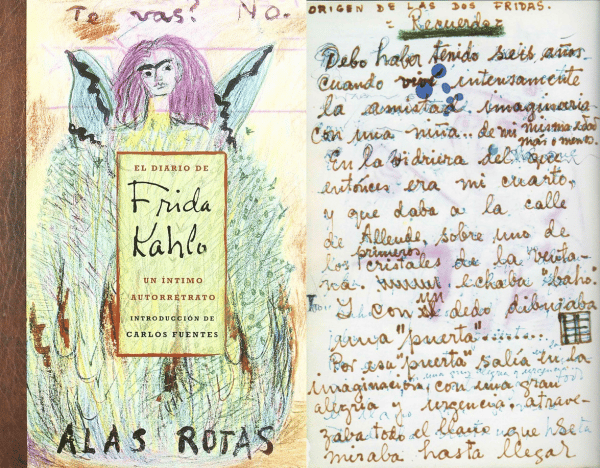 Te vas? No.
EL DIARIO DE
Frida
Kahlo
UN ÍNTIMO
AUTORRETRATO
INTRODUCCIÓN DE
CARLOS FUENTES
ALAS ROTAS
ORIGEN DE LAS DOS FRIDAS.
= Recuerdo =
Debo haber tenido seis años
cuando viví intensamente
la amistad imaginaria
con una niña.. de mi misma edad
más o menos.
En la vidriera del que
entónces era mi cuarto,
y que daba a la calle
de Allende, sobre uno de
los primeros cristales de la venta-
na echaba "baho".
Y con un dedo dibujaba
una "puerta".......
Por esa "puerta" salía en la
imaginación, con una gran
alegría y urgencia. atrave-
zaba todo el llano que se
miraba hasta llegar